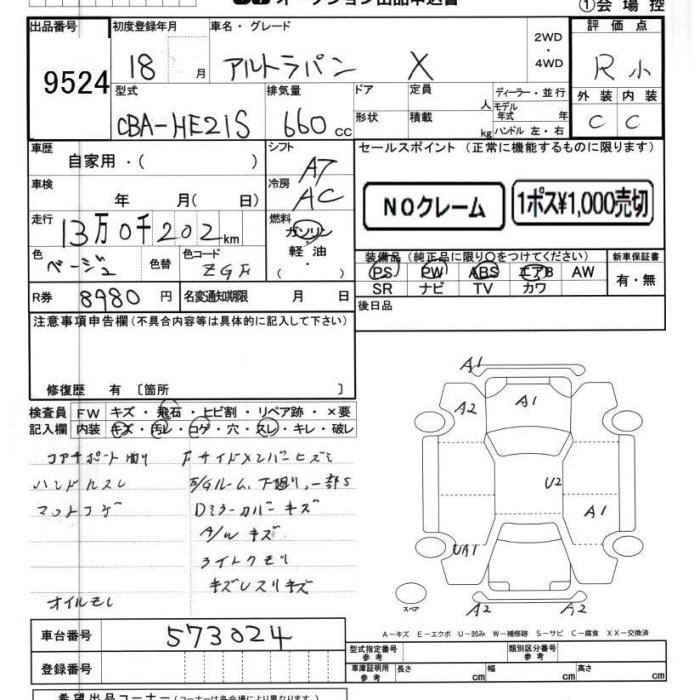 オークション出品申込書
①会場控
出品番号 初度登録年月 車名・グレード 2WD・4WD 評価点
9524 18 月 アルトラパン X R 小
型式 排気量 ドア 定員 人 ディーラー・並行 外装 内装
CBA-HE21S 660 cc 形状 積載 kg モデル年式 年 C C
ハンドル 左・右
車歴 自家用・( ) シフト AT セールスポイント (正常に機能するものに限ります)
車検 年 月( 日) 冷房 AC NOクレーム 1ポス¥1,000売切
走行 13万0千202km 燃料 ガソリン 軽・油 ・( )
色 ベージュ 色替 色コード ZGF
装備品 (純正品に限り〇をつけてください) 新車保証書
PS PW ABS エアB AW 有・無
SR ナビ TV カワ
R券 8980 円 名変通知期限 月 日
後日品
注意事項申告欄(不具合内容等は具体的に記入して下さい)
修復歴 有 〔箇所 〕
検査員 FW キズ・飛石・ヒビ割・リペア跡・×要
記入欄 内装 キズ・汚レ・コゲ・穴・スレ・キレ・破レ
コアサポート曲り Fサイドメンバーヒズミ
ハンドルスレ
マットコゲ Dミラーカバーキズ
A/Wキズ
ライトクモリ
オイルモレ
A1
A2 A1
U2
A1
UA1
A2 A2
スペア
A-キズ E-エクボ U-凹み W-補修跡 S-サビ C-腐食 XX-交換済
車台番号 573024
登録番号
型式指定番号 参考 類別区分番号 参考
車庫証明用 参考 長さ cm 幅 cm 高さ cm
希望出品コーナー(コーナーは各会場により異なります。)